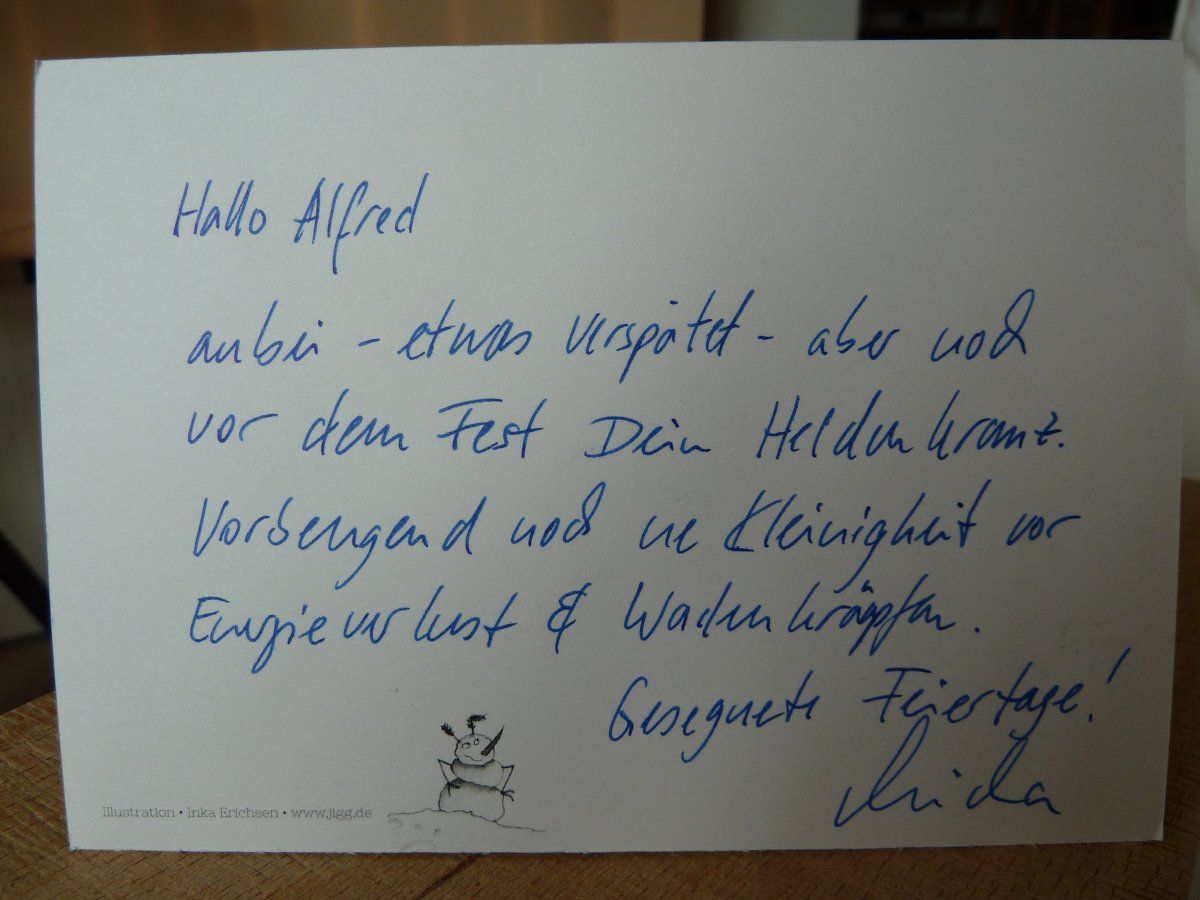 Hallo Alfred
anbei - etwas verspätet - aber noch
vor dem Fest Dein Heldenkranz.
Vorbeugend noch ne Kleinigkeit vor
Energieverlust & Wadenkrämpfen.
Gesegnete Feiertage!
Illustration • Inka Erichsen • www.jigg.de